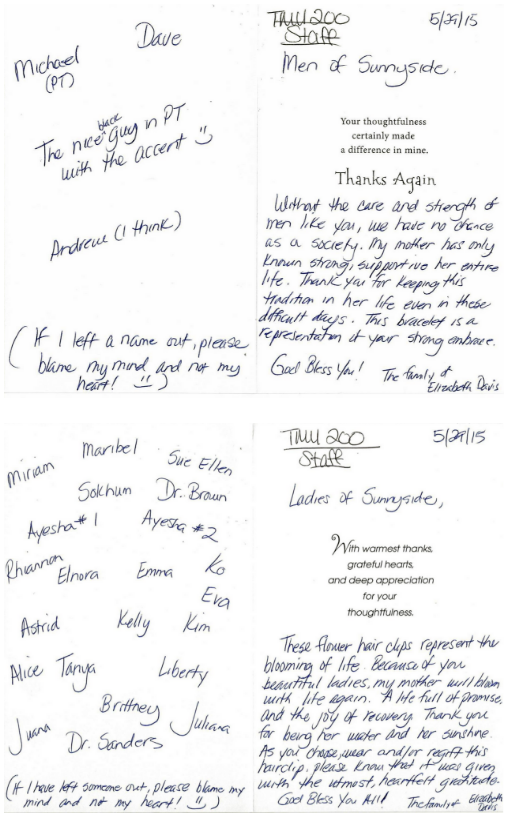 Dave
Michael
(PT)
The nice black guy in PT
with the accent :)
Andrew (I think)
(If I left a name out, please
blame my mind and not my
heart! :) )
TMU 200
Staff
5/29/15
Men of Sunnyside.
Your thoughtfulness
certainly made
a difference in mine.
Thanks Again
Without the care and strength of
men like you, we have no chance
as a society. My mother has only
known strong, supportive her entire
life. Thank you for keeping this
tradition in her life even in these
difficult days. This bracelet is a
representation of your strong embrace.
God Bless You!
The family of
Elizabeth Davis
Miriam
Maribel
Sue Ellen
Sokhum
Dr. Braun
Ayesha #1
Ayesha #2
Rhiannon
Elnora
Emma
Ko
Eva
Astrid
Kelly
Kim
Alice
Tanya
Liberty
Brittney
Juana
Juliana
Dr. Sanders
(If I have left someone out, please blame my
mind and not my heart! :) )
TMU 200
Staff
5/29/15
Ladies of Sunnyside,
With warmest thanks,
grateful hearts,
and deep appreciation
for your
thoughtfulness.
These flower hair clips represent the
blooming of life. Because of you
beautiful ladies, my mother will bloom
with life again. A life full of promise,
and the joy of recovery. Thank you
for being her water and her sunshine.
As you choose, wear and/or regift this
hairclip, please know that it was given
with the utmost, heartfelt gratitude.
God Bless You All!
The family of Elizabeth
Davis